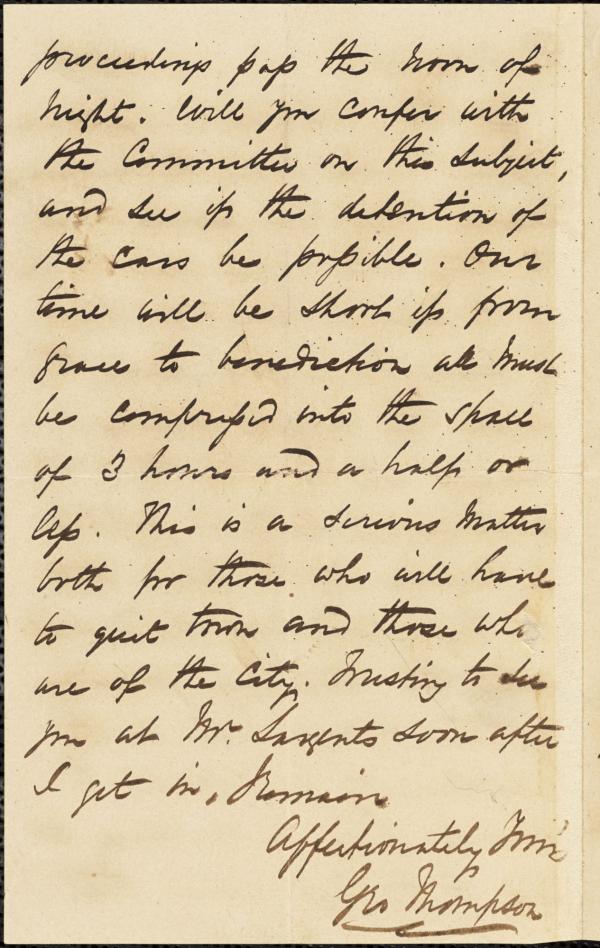 proceedings pass the noon of
night. Will you confer with
the Committee on this subject,
and see if the detention of
the cars be possible. Our
time will be short if from
grace to benediction all must
be compressed into the space
of 3 hours and a half or
less. This is a serious matter
both for those who will have
to quit town and those who
are of the City. Trusting to see
you at Mr. Sargents soon after
I get in, Remain
Affectionately Yours
Geo Thompson